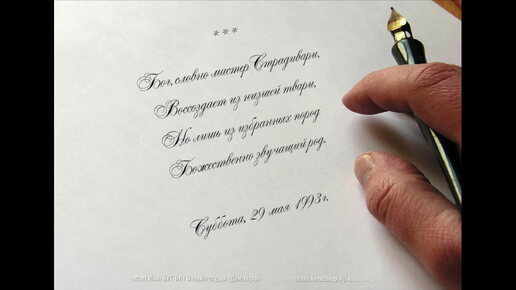 * * *
Бог, словно мастер Страдивари,
Воссоздает из низшей твари,
Но лишь из избранных пород
Божественно звучащий род.
Суббота, 29 мая 1993г.